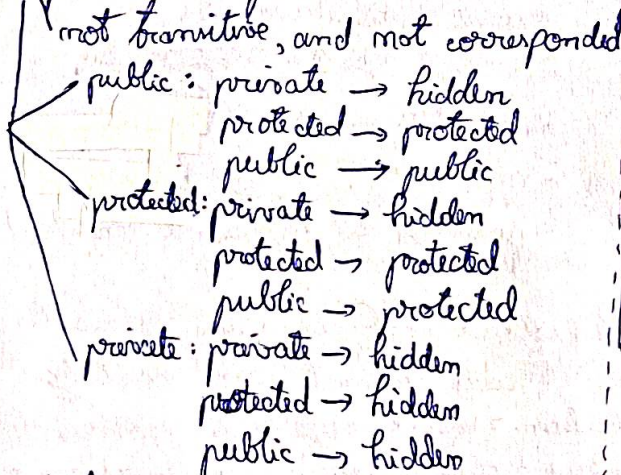 not transitive, and not corresponded
public : private → hidden
protected → protected
public → public
protected: private → hidden
protected → protected
public → protected
private : private → hidden
protected → hidden
public → hidden